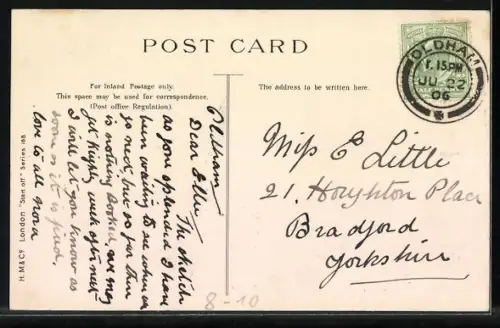 POST CARD
For Inland Postage only.
This space may be used for correspondence.
(Post office Regulation).
The address to be written here.
OLDHAM
1.15PM
JU 22
06
Miss E Little
21. Houghton Place
Bradford
Yorkshire
Oldham
Dear Ellie
The sketch
as you splendid I have
been waiting to see when we
go next, but so far there
is nothing booked, we may
get Keighly week after next
I will let you know as
soon as it is fixed.
love to all Nora
H.M.&Co. London "Star off" Series 168
8-10